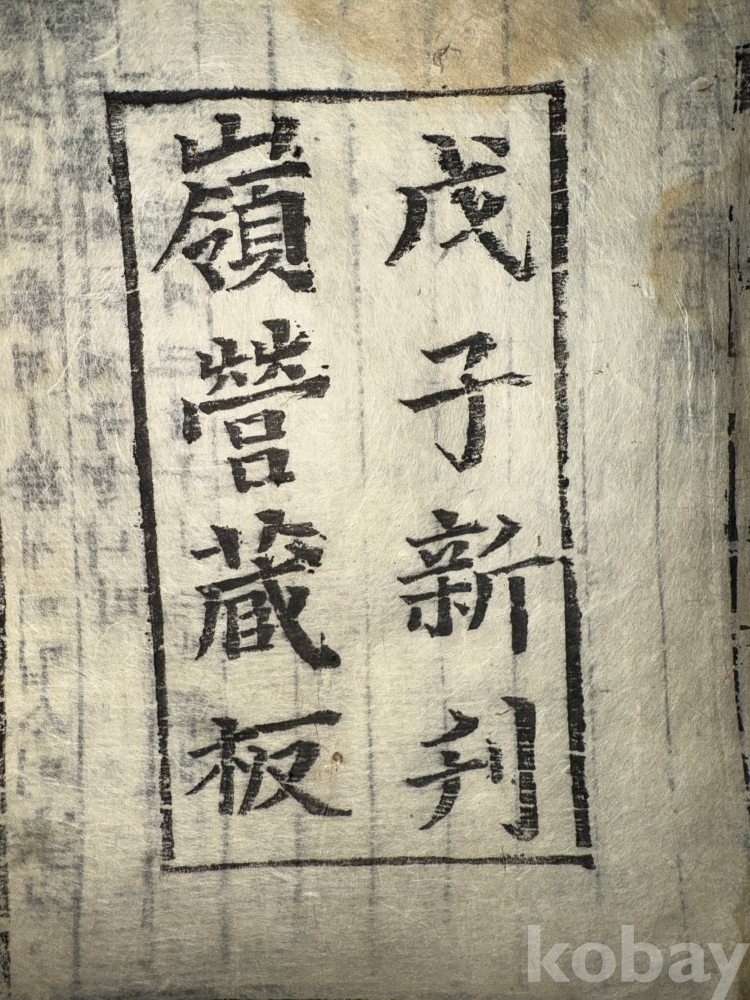 戊子新刋
嶺營藏板
kobay